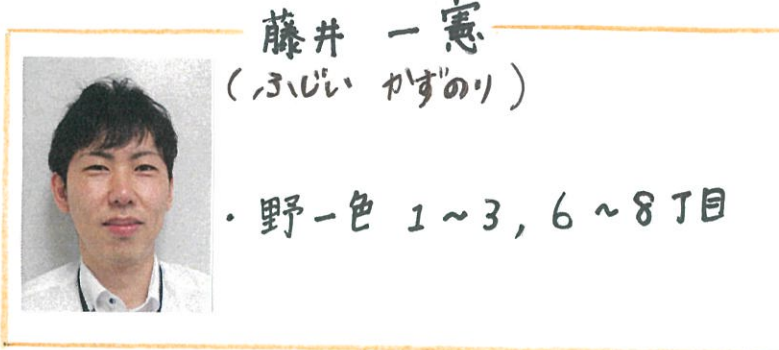 藤井 一憲
(ふじい かずのり)
・野一色 1~3, 6~8丁目